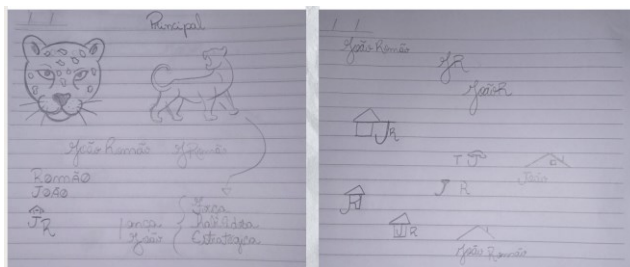 Principal
João Romão JRomão
ROMÃO
JOÃO
JR
onça
João
Força
habilidosa
Estrategica
João Romão
JR
JoãoR
JR
T J
João
J R
JR
JR
João Romão